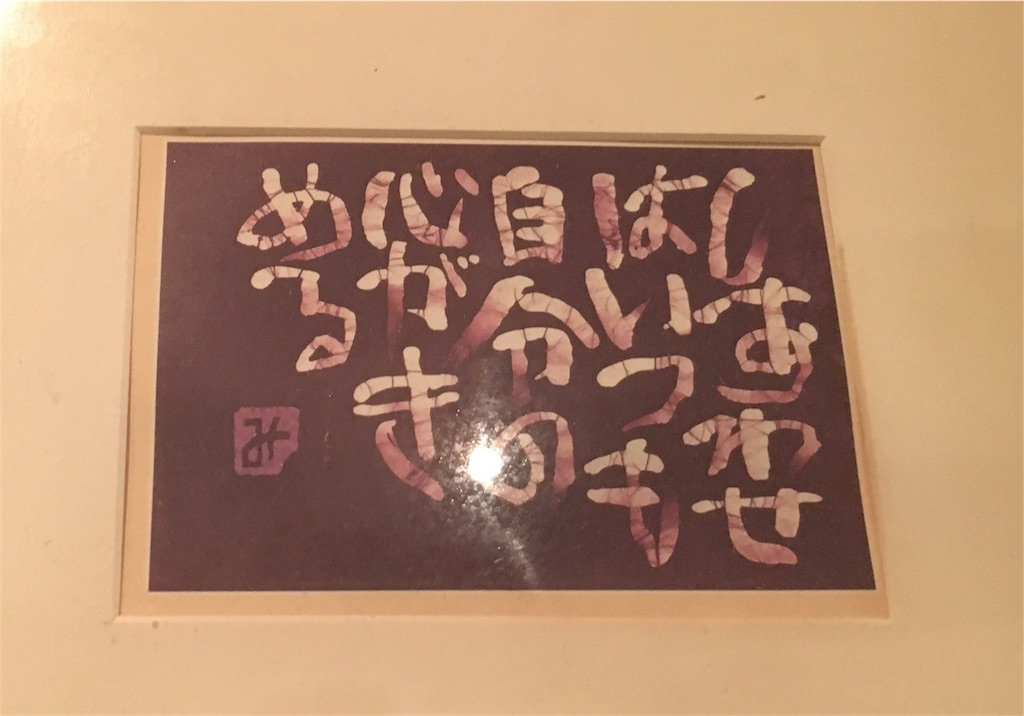 しあわせ
はいつも
自分の
心がき
める
み